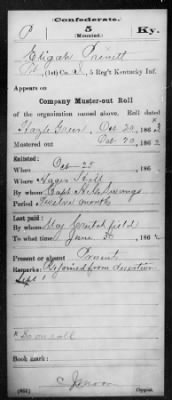 Confederate.
P 5 Ky.
(Mounted.)
Elijah Privett
Pt, (1st) Co. , 5 Reg't Kentucky Inf.
Appears on
Company Muster-out Roll
of the organization named above. Roll dated
Hazle Green, Oct 20, 1862
Mustered out Oct 20, 1862
Enlisted:
When Oct 25, 186
Where
By whom Capt
Period Twelve months
Last paid:
By whom Maj Crutchfield
To what time June 30, 186
Present or absent Present
Remarks: Rejoined from desertion
Sept 1
Book mark:
(861) Copyist.